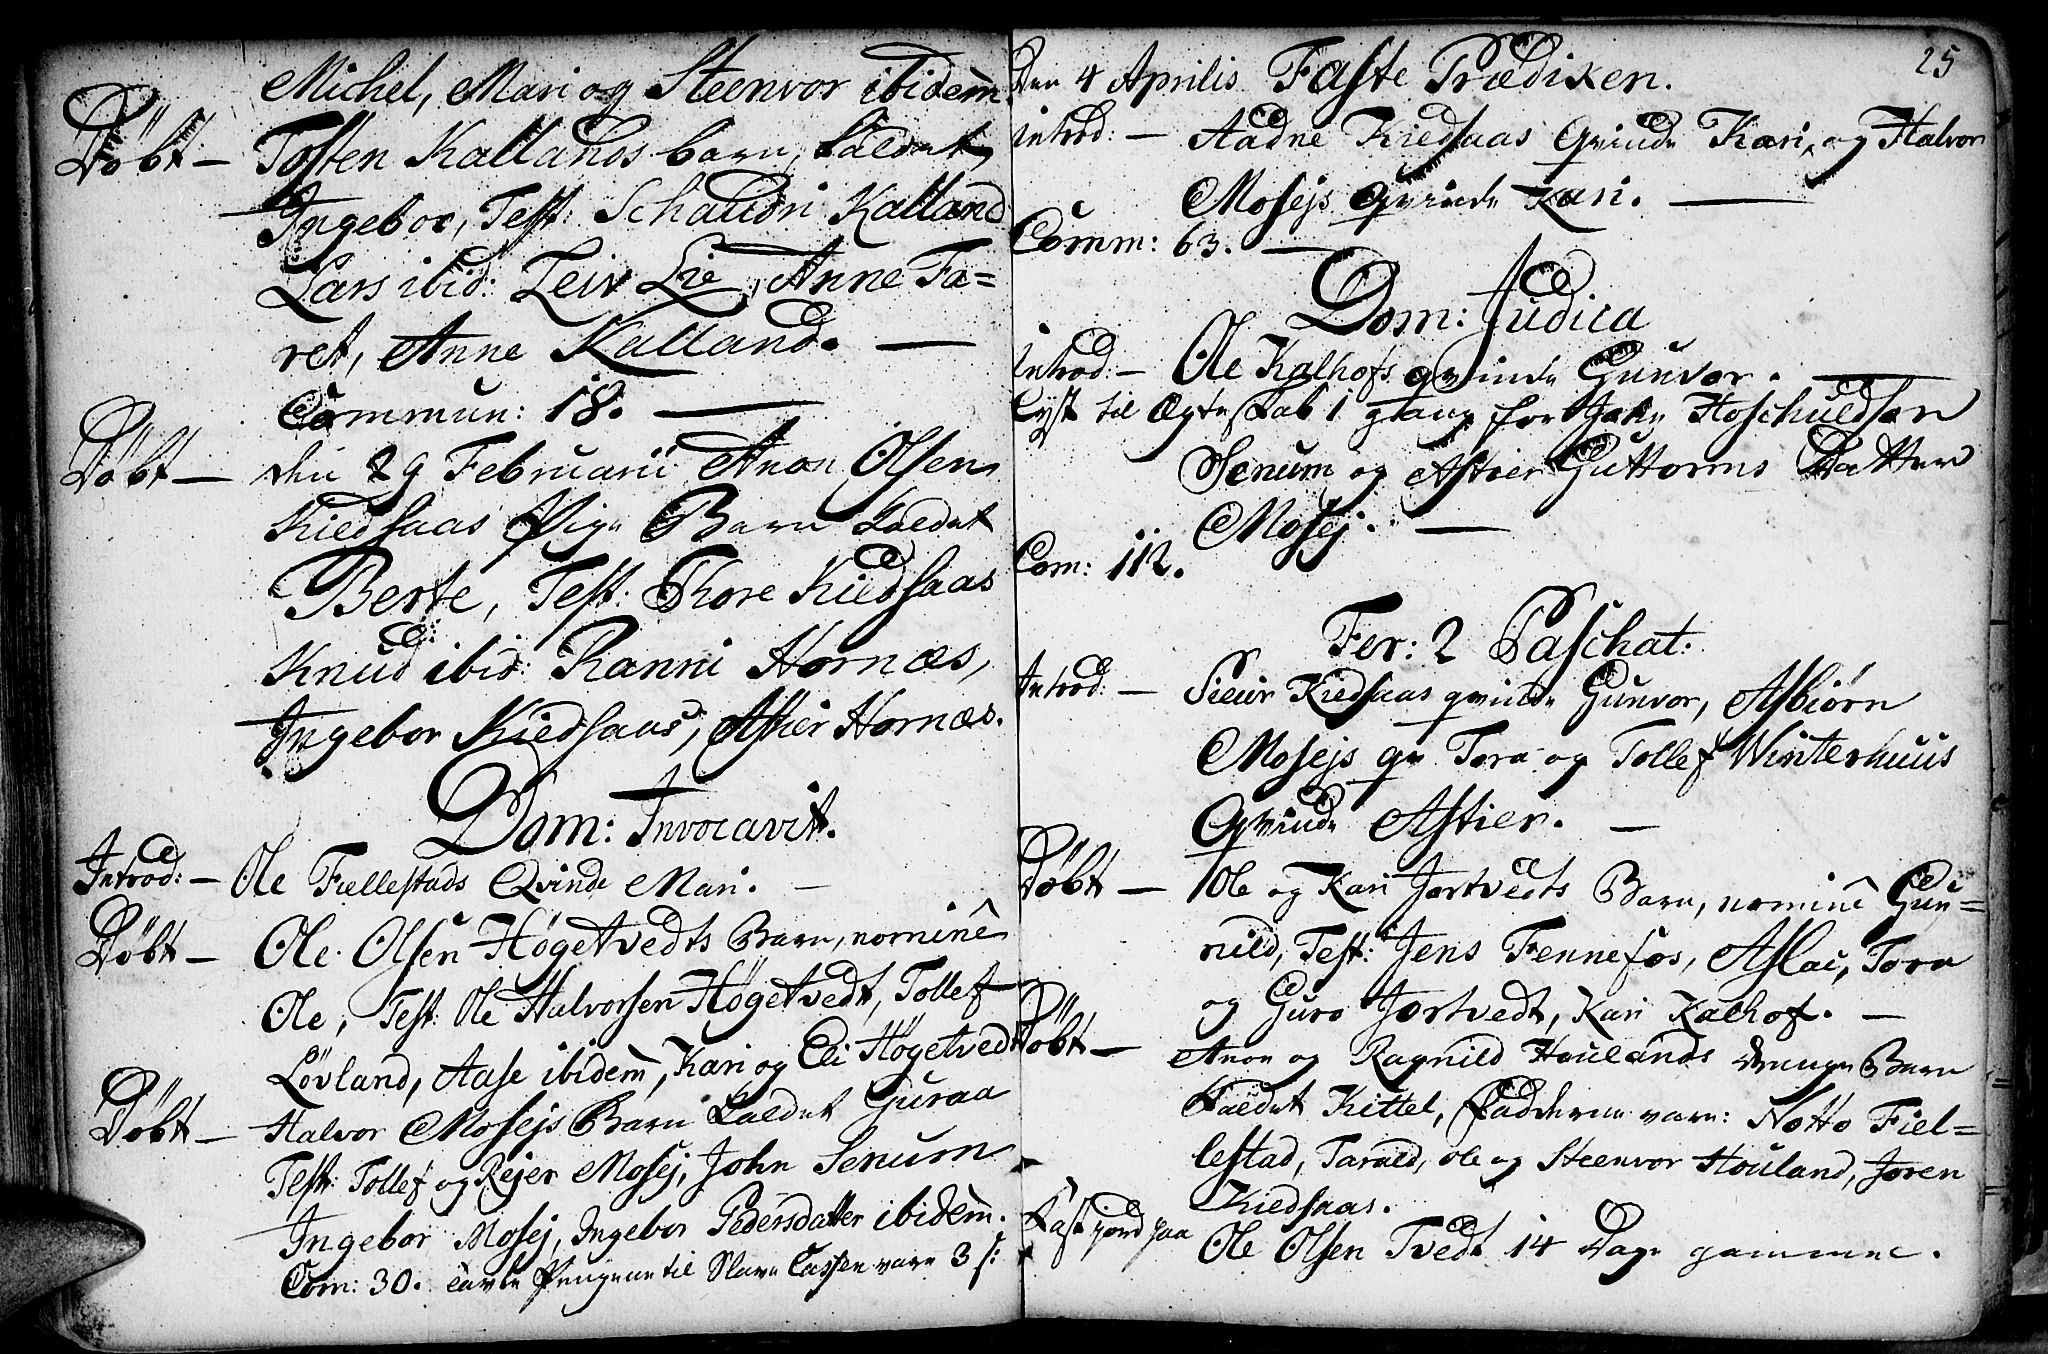 Michel, Mari og Steenvor ibidem
Döbt — Tosten Kallands barn, kaldet
Ingebor, Test: Schaudri Kalland
Lars ibid: Leiv Lie, Anne Fa=
ret, Anne Kalland. —
Commun: 18. —
Döbt — den 29 Februarii Anon Olsen
Kiedsaas Pige Barn kaldet
Berte, Test: Thore Kiedsaas
Knud ibid: Ranni Hornæs,
Ingebor Kiedsaas, Astier Hornæs.
Dom: Invocavit.
Introd: — Ole Fiellestads Qvinde Mari. —
Döbt — Ole Olsen Høgetvedts Barn, nominê
Ole, Test: Ole Halvorsen Høgetvedt, Tollef
Lövland, Aase ibidem, Kari og Eli Høgetvedt
Döbt — Halvor Mosejs Barn kaldet Guraa
Test: Tollef og Rejer Mosej, John Senum
Ingebor Mosej, Ingebor Pedersdatter ibidem.
Com: 30. Tavle Pengene til Slave Cassen vare 3 s:
25
Den 4 Aprilis Faste Prædiken.
introd: — Aadne Kiedsaas Qvinde Kari, og Halvor
Mosejs Qvinde Kari. —
Comm: 63. —
Dom: Judica
introd: — Ole Kalhofs qvinde Gunvor. —
Lyst til Ægteskab 1 gang for John Hoschuldsen
Senum og Astier Guttorms Datter
Mosej. —
Com: 112.
Fer: 2 Paschat:
Introd: — Siur Kiedsaas qvinde Gunvor, Asbiørn
Mosejs qv Tora og Tollef Winterhuus
Qvinde Astier. —
Döbt — Ole og Kari Jortvedts Barn, nominê Gun=
nild, Test: Jens Fennefos, Aslac, Tora
og Guro Jortvedt, Kari Kalhof. —
Döbt — Anon og Ragnild Houlands drenge Barn
kaldet Kittel, Fadderne vare: Notto Fiel=
lestad, Tarald, Ole og Steenvor Houland, Joren
Kiedsaas.
Kast jord paa Ole Olsen Tvedt 14 Dage gammel.